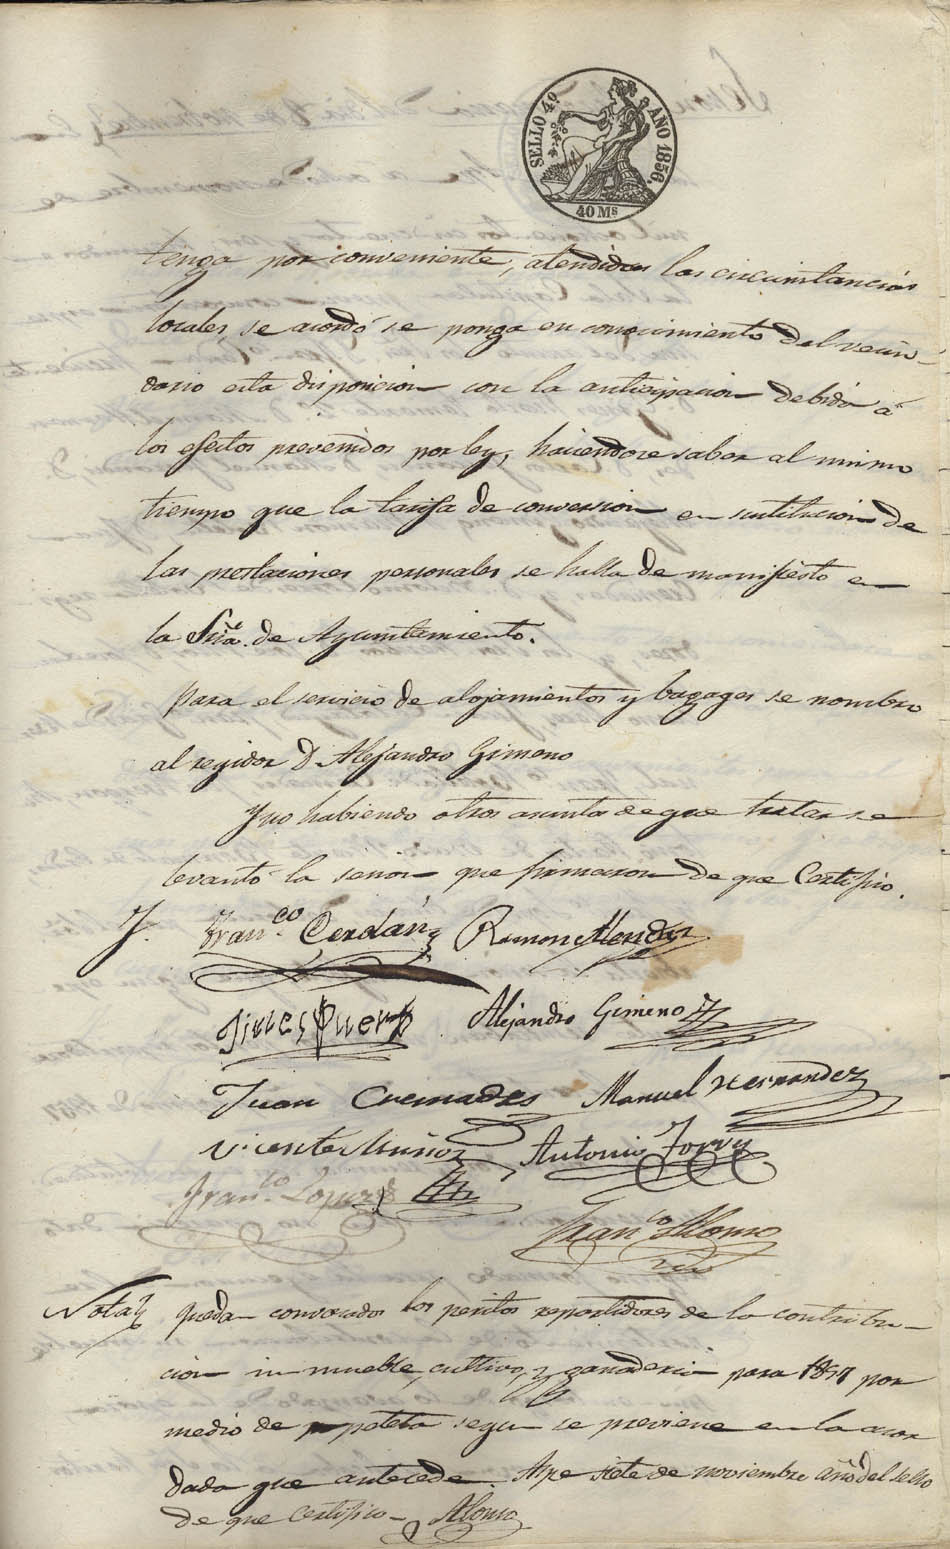 SELLO 4º AÑO 1856.
40 Ms
tenga por conveniente, atendidas las circunstancias
locales, se acordó se ponga en conocimiento del vecin-
dario esta disposicion con la anticipacion debida á
los efectos prevenidos por ley, haciendose saber al mismo
tiempo que la tarifa de conversion en sustitucion de
las prestaciones personales se halla de manifiesto en
la Sriâ. de Ayuntamiento.
Para el servicio de alojamientos y bagages se nombro
al regidor D Alejandro Gimeno
Y no habiendo otros asuntos de que tratar se
levantó la sesion que firmaron de que Certifico.
Franco. Cerdán Ramon
Gines Puerto Alejandro Gimeno
Juan Cremades Manuel Hernandez
Vicente Muñoz Antonio
Franco Lopez
Franco Alonso
Nota Quedan convocados los peritos repartidores de la contribu-
cion inmueble, cultivo, y ganaderia para 1857 por
medio de papeleta segun se previene en la acor
dada que antecede. Aspe siete de noviembre año del sello
de que certifico - Alonso